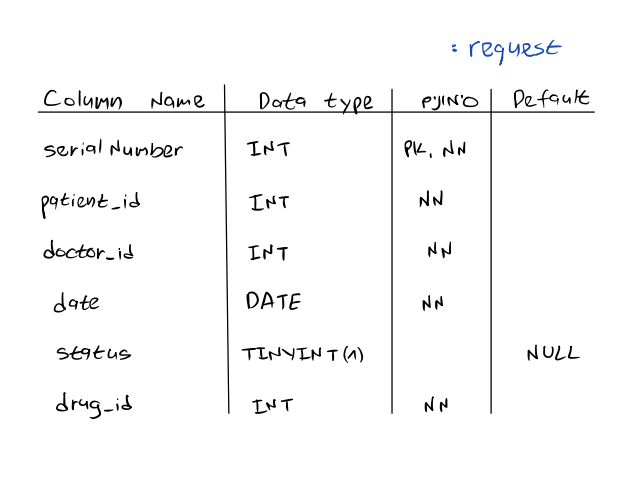 : request
Column Name Data type Default
serialNumber INT PK, NN
patient_id INT NN
doctor_id INT NN
date DATE NN
status TINYINT(1) NULL
drug_id INT NN